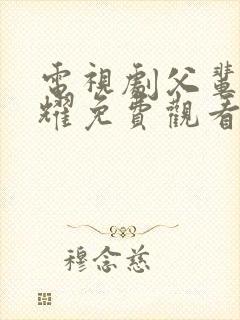 電視劇父輩
耀免費觀看
穆念慈